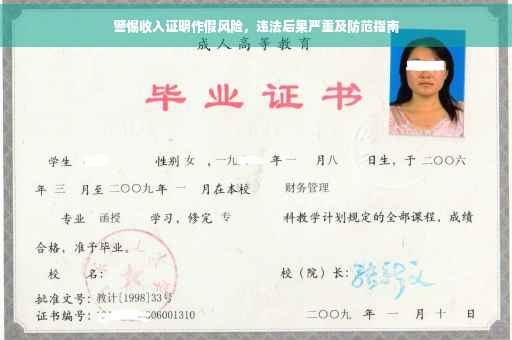 警惕收入证明作假风险，违法后果严重及防范指南
成人高等教育
毕业证书
学生 性别 女 ，一九 年 一 月八 日生，于 二〇〇六
年 三 月至 二〇〇九 年 一 月在本校 财务管理
专业 函授 学习，修完 专 科教学计划规定的全部课程，成绩
合格，准予毕业。
校 名： 校（院）长：
批准文号：教计[1998]33号
证书编号： 606001310 二〇〇九 年 一 月 十 日